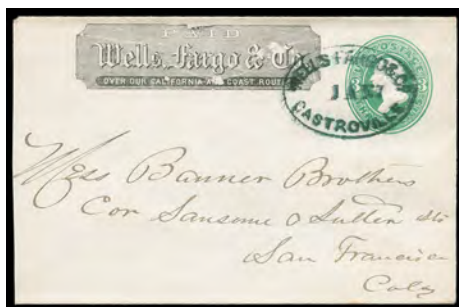 PAID
Wells, Fargo & Co.
OVER OUR CALIFORNIA AND COAST ROUTES
WELLS FARGO & CO
CASTROVILLE
POSTAGE
Mess Banner Brothers
Cor Sansome & Sutter Sts
San Francisco
Cala